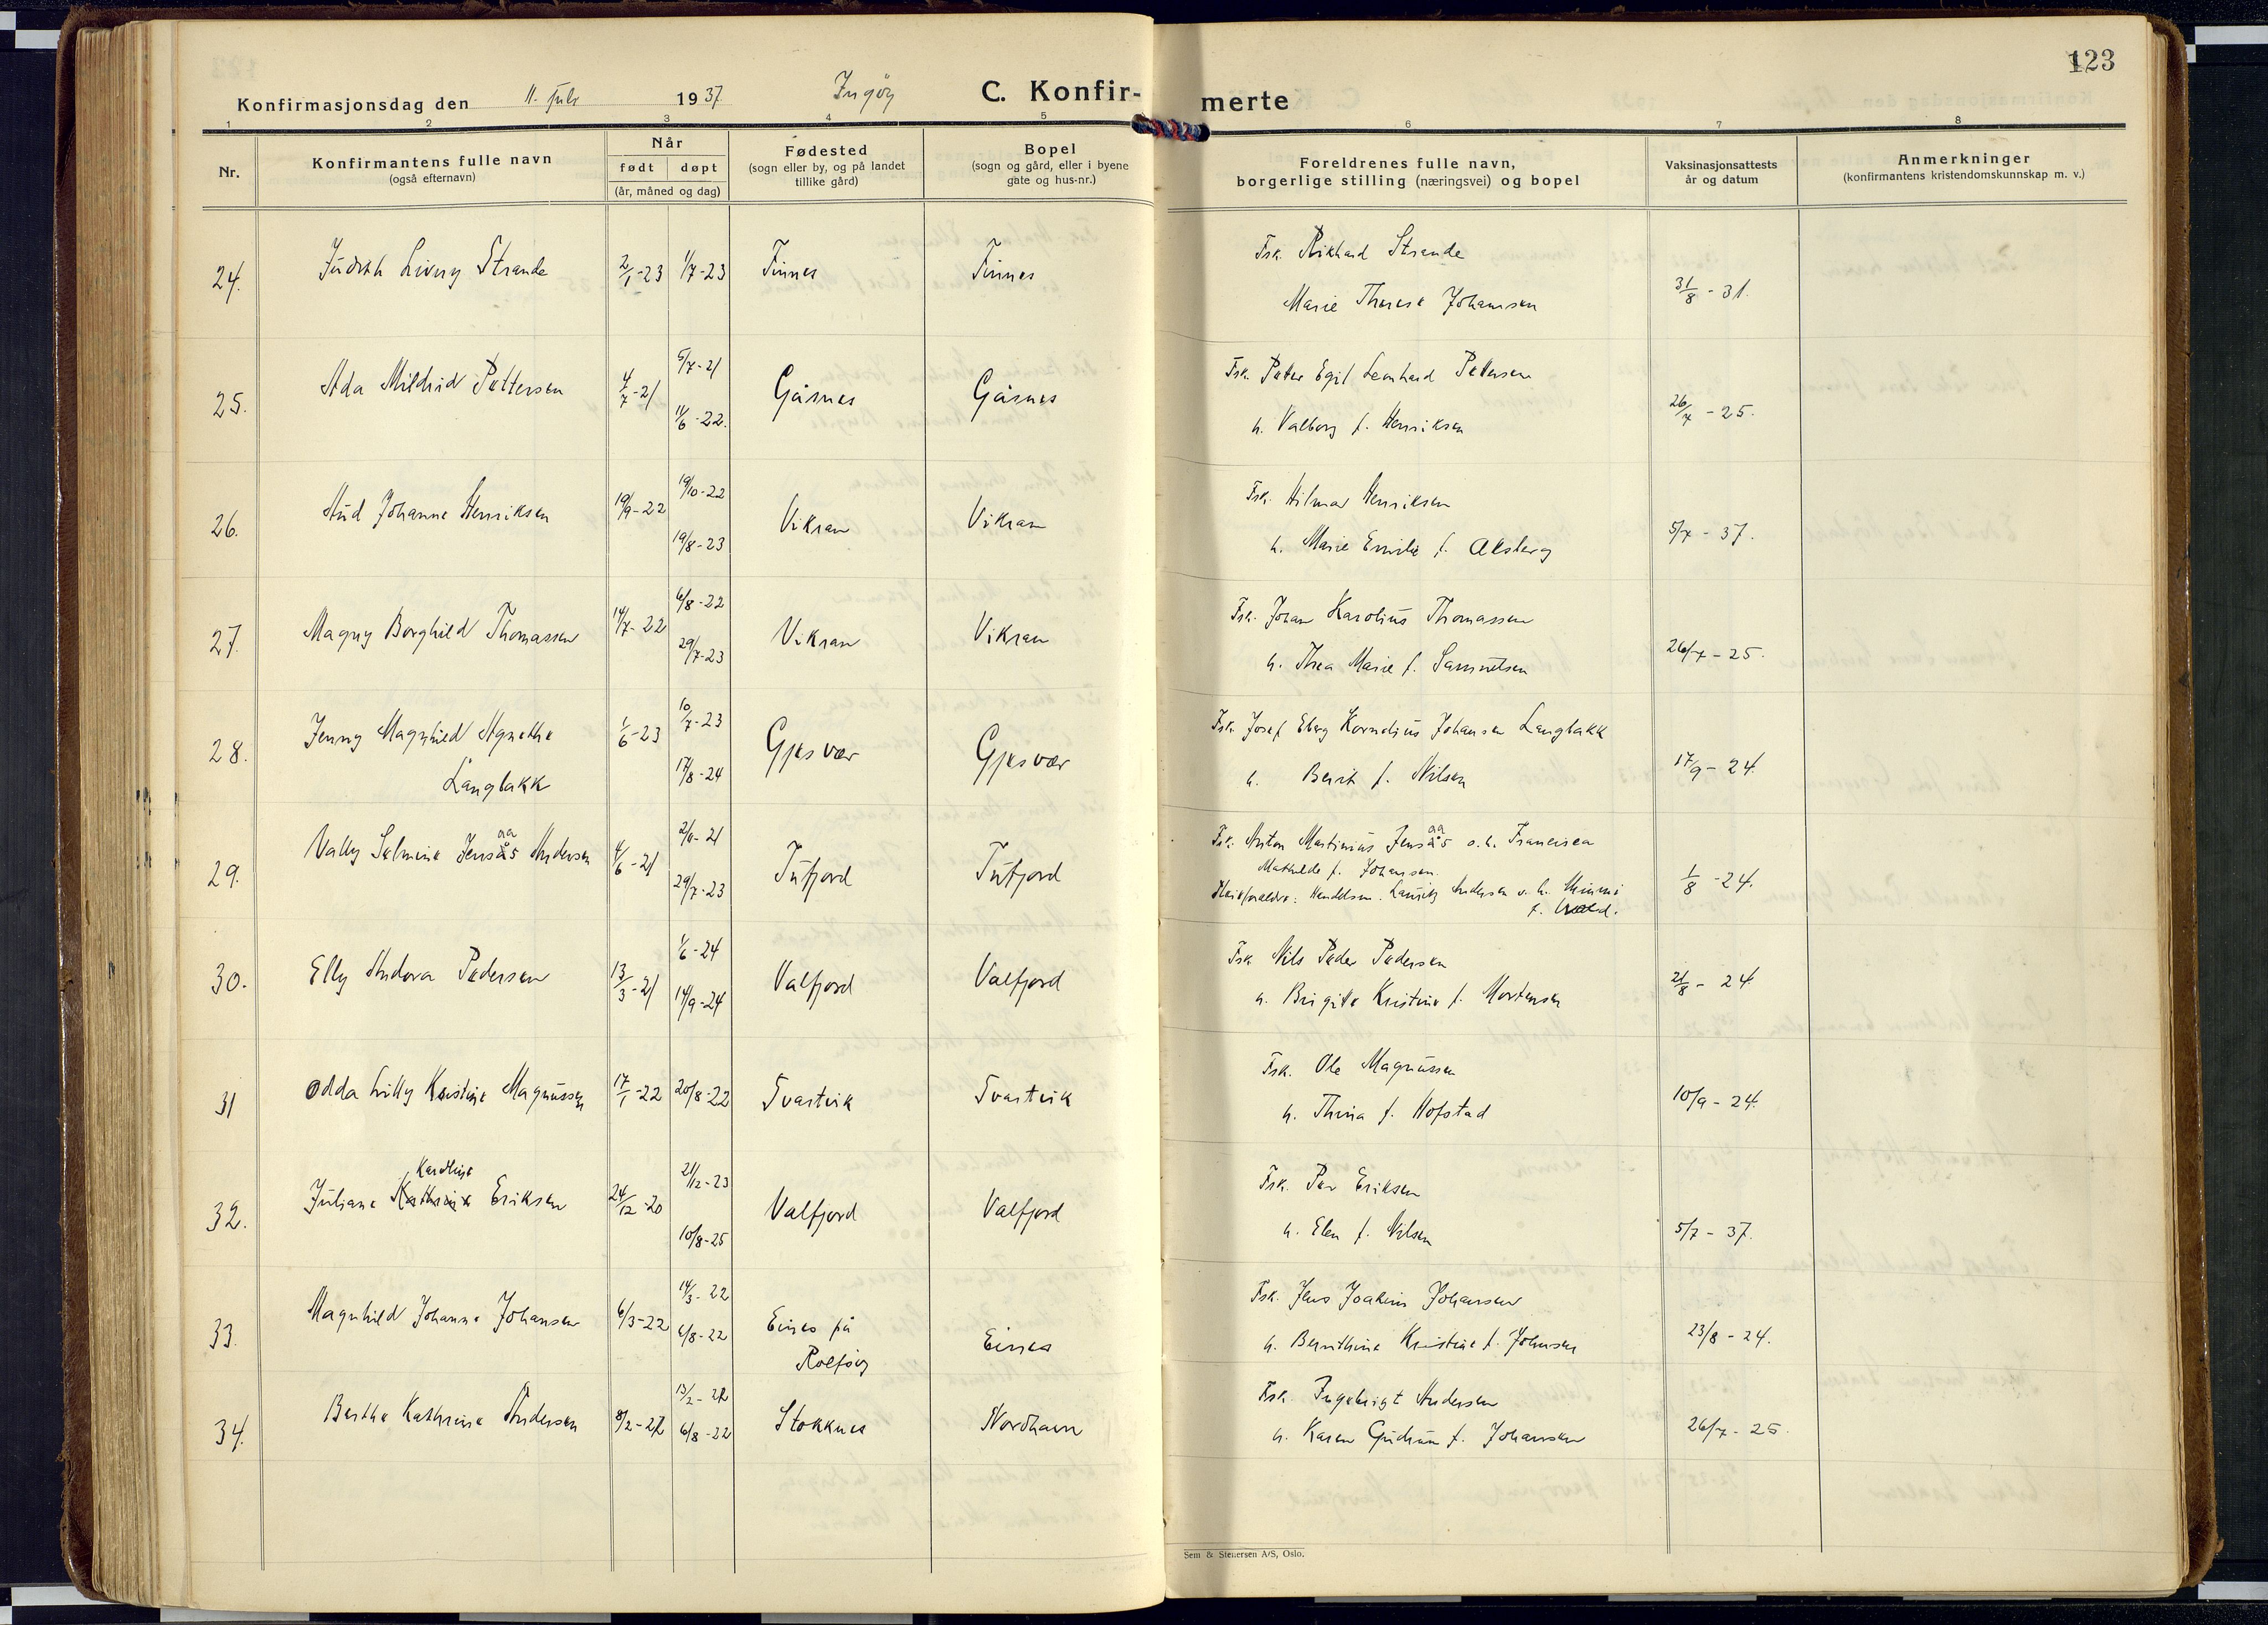 123
Konfirmasjonsdag den 11. juli 1937 Ingöy C. Konfirmerte
1 2 3 4 5 6 7 8
Nr.
Konfirmantens fulle navn
(også efternavn)
Når
født døpt
(år, måned og dag)
Fødested
(sogn eller by, og på landet
tillike gård)
Bopel
(sogn og gård, eller i byene
gate og hus-nr.)
Foreldrenes fulle navn,
borgerlige stilling (næringsvei) og bopel
Vaksinasjonsattests
år og datum
Anmerkninger
(konfirmantens kristendomskunnskap m. v.)
24. Judith Livery Strande 2/1-23 1/7-23 Finnes Finnes Fsk. Rikhard Strande
Marie Therese Johansen 31/8-31.
25. Ada Mildrid Pettersen 4/7-21 5/7-21
11/6-22. Gåsnes Gåsnes Fsk. Peter Egil Leonhard Pettersen
h. Valborg f. Henriksen 26/7-25.
26. Aud Johanne Henriksen 19/9-22 19/10-22
19/8-23 Vikran Vikran Fsk. Hilmar Henriksen
h. Marie Emilie f. Aksberg 5/7-37.
27. Magny Borghild Thomassen 14/7-22 6/8-22
29/7-23 Vikran Vikran Fsk. Johan Karolius Thomassen
h. Thea Marie f. Samuelsen 26/7-25.
28. Jenny Magnhild Agnethe
Langbakk 1/6-23 10/7-23
17/8-24 Gjesvær Gjesvær Fsk. Josef Eberg Kornelius Johansen Langbakk
h. Berit f. Nilsen 17/9-24.
29. Vally Selmine Jensås Andersen 4/6-21
29/7-23 Tufjord Tufjord Fsk. Anton Martinius Jensås o.h. Francisca
Mathilde f. Johansen.
Pleieforeldre: Handelsm. Lauritz Andersen o. h. Mimmi 1/8-24.
30. Elly Andora Pedersen 13/3-21 1/6-24
14/9-24 Valfjord Valfjord Fsk. Nils Peder Pedersen
h. Brigitte Kristine f. Mortensen 21/8-24
31 Odda Lilly Kristine Magnussen 17/1-22 20/8-22 Tvartvik Tvartvik Fsk. Ole Magnussen
h. Thina f. Hofstad 10/9-24.
32. Karoline
Juliane Kathrine Eriksen 24/12-20 21/12-23
10/8-25 Valfjord Valfjord Fsk. Per Eriksen
h. Elen f. Nilsen 5/7-37.
33. Magnhild Johanne Johansen 6/3-22 14/3-22
6/8-22 Eines på
Rolfsöy Eines Fsk. Jens Joakim Johansen
h. Bernthine Kristine f. Johnsen 23/8-24.
34. Berthe Kathrine Andersen 8/2-22 13/2-22
6/8-22 Stokknes Nordhavn Fsk. Ingebrigt Andersen
h. Karen Gudrun f. Johansen 26/7-25.
Sem & Stenersen A/S, Oslo.